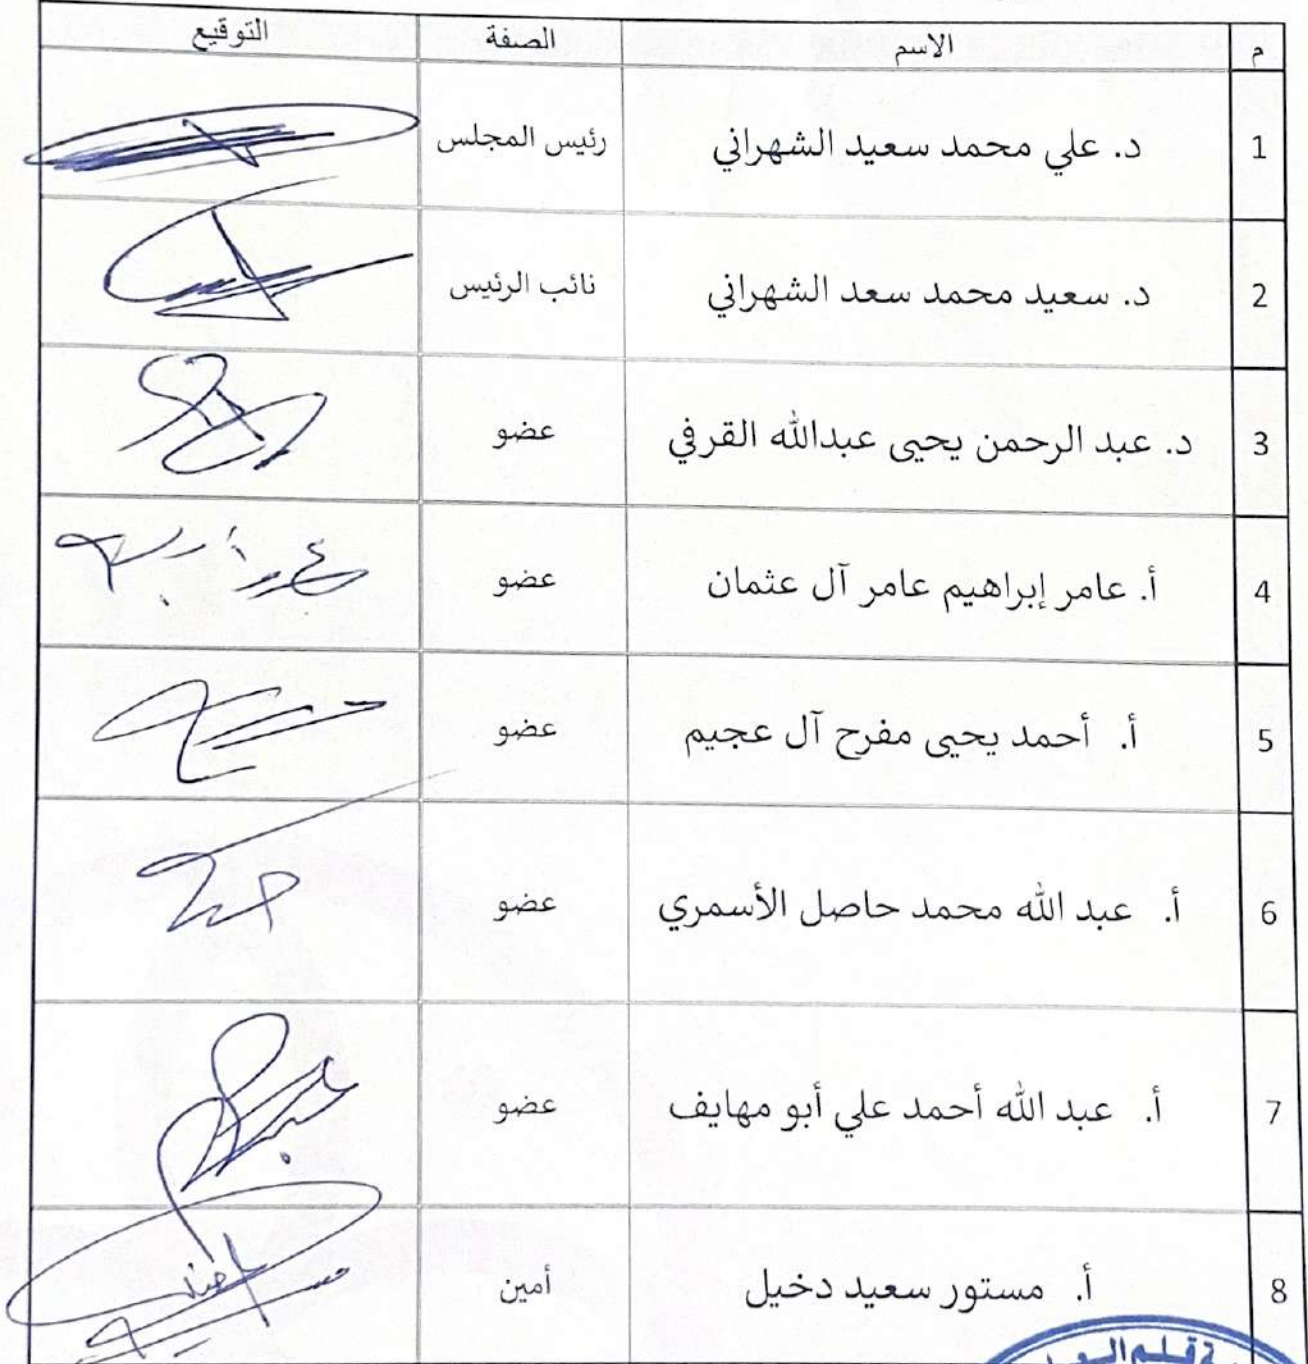 م الاسم الصفة التوقيع
1 د. علي محمد سعيد الشهراني رئيس المجلس
2 د. سعيد محمد سعد الشهراني نائب الرئيس
3 د. عبد الرحمن يحيى عبدالله القرفي عضو
4 أ. عامر إبراهيم عامر آل عثمان عضو
5 أ. أحمد يحيى مفرح آل عجيم عضو
6 أ. عبد الله محمد حاصل الأسمري عضو
7 أ. عبد الله أحمد علي أبو مهايف عضو
8 أ. مستور سعيد دخيل أمين